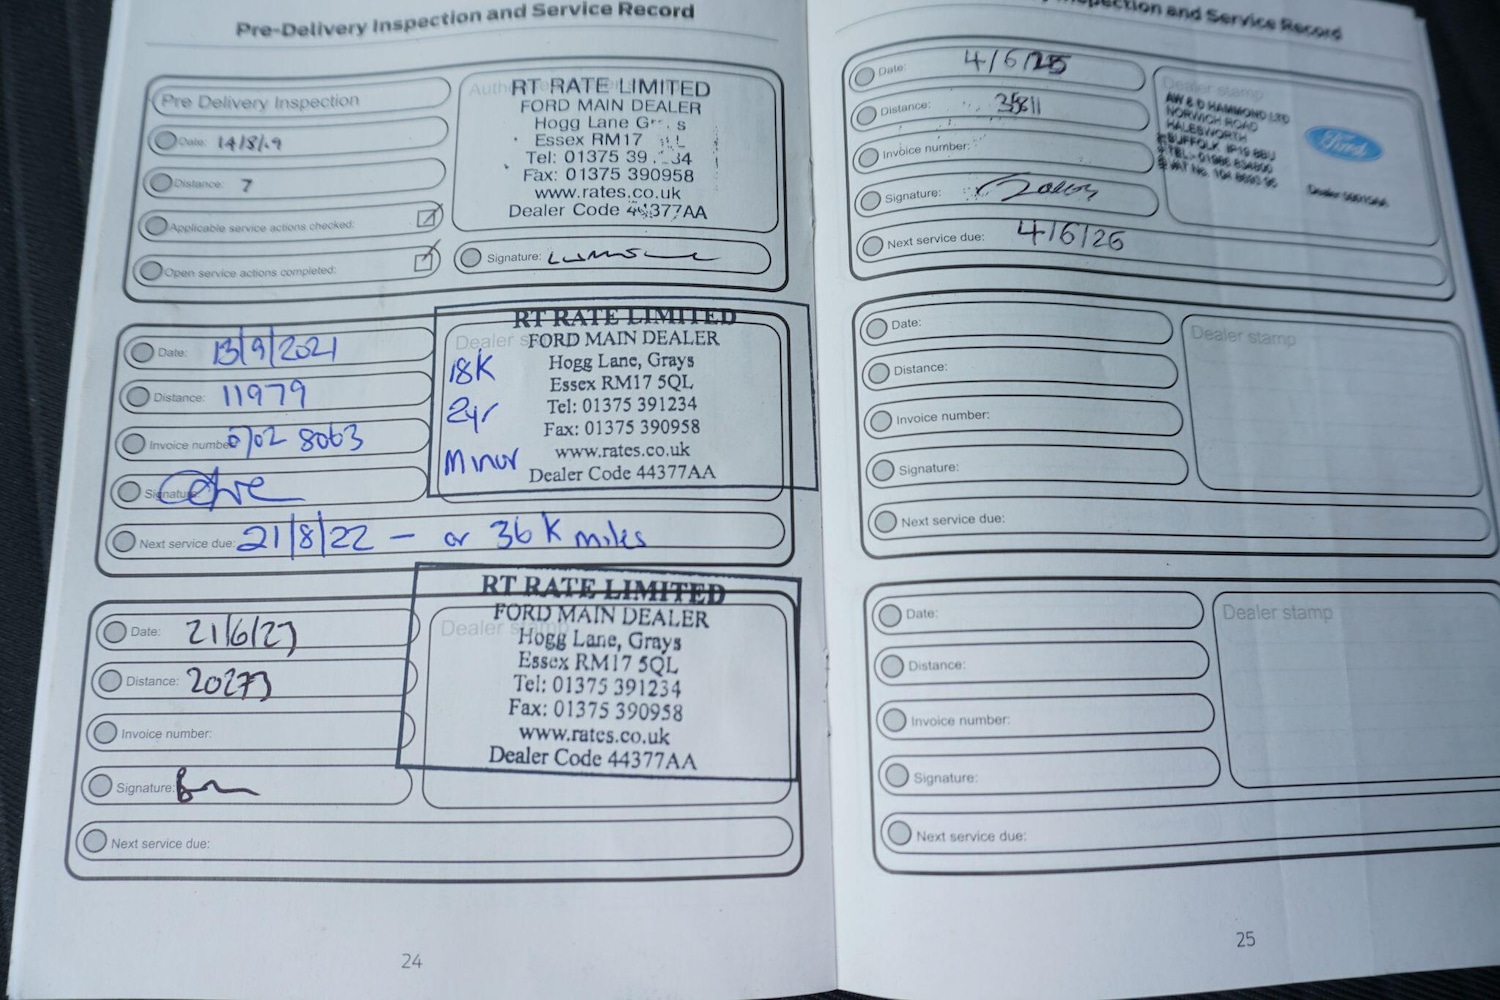 Pre-Delivery Inspection and Service Record
Pre Delivery Inspection
Date: 14/8/19
Distance: 7
Applicable service actions checked:
Open service actions completed:
RT RATE LIMITED
FORD MAIN DEALER
Hogg Lane
Essex RM17
Tel: 01375 39 34
Fax: 01375 390958
www.rates.co.uk
Dealer Code 44377AA
Signature:
Date: 13/9/2021
Distance: 11979
Invoice number: 0702 8063
Signature:
Next service due: 21/8/22 - or 36K miles
Dealer stamp
18K
2yr
Minor
RT RATE LIMITED
FORD MAIN DEALER
Hogg Lane, Grays
Essex RM17 5QL
Tel: 01375 391234
Fax: 01375 390958
www.rates.co.uk
Dealer Code 44377AA
Date: 21/6/23
Distance: 20273
Invoice number:
Signature:
Next service due:
Dealer stamp
RT RATE LIMITED
FORD MAIN DEALER
Hogg Lane, Grays
Essex RM17 5QL
Tel: 01375 391234
Fax: 01375 390958
www.rates.co.uk
Dealer Code 44377AA
24
Inspection and Service Record
Date: 4/6/25
Distance: 35811
Invoice number:
Signature:
Next service due: 4/6/26
Dealer stamp
AW & D HAMMOND LTD
NORWICH ROAD
HALESWORTH
SUFFOLK IP19
Ford
Date:
Distance:
Invoice number:
Signature:
Next service due:
Dealer stamp
Date:
Distance:
Invoice number:
Signature:
Next service due:
Dealer stamp
25